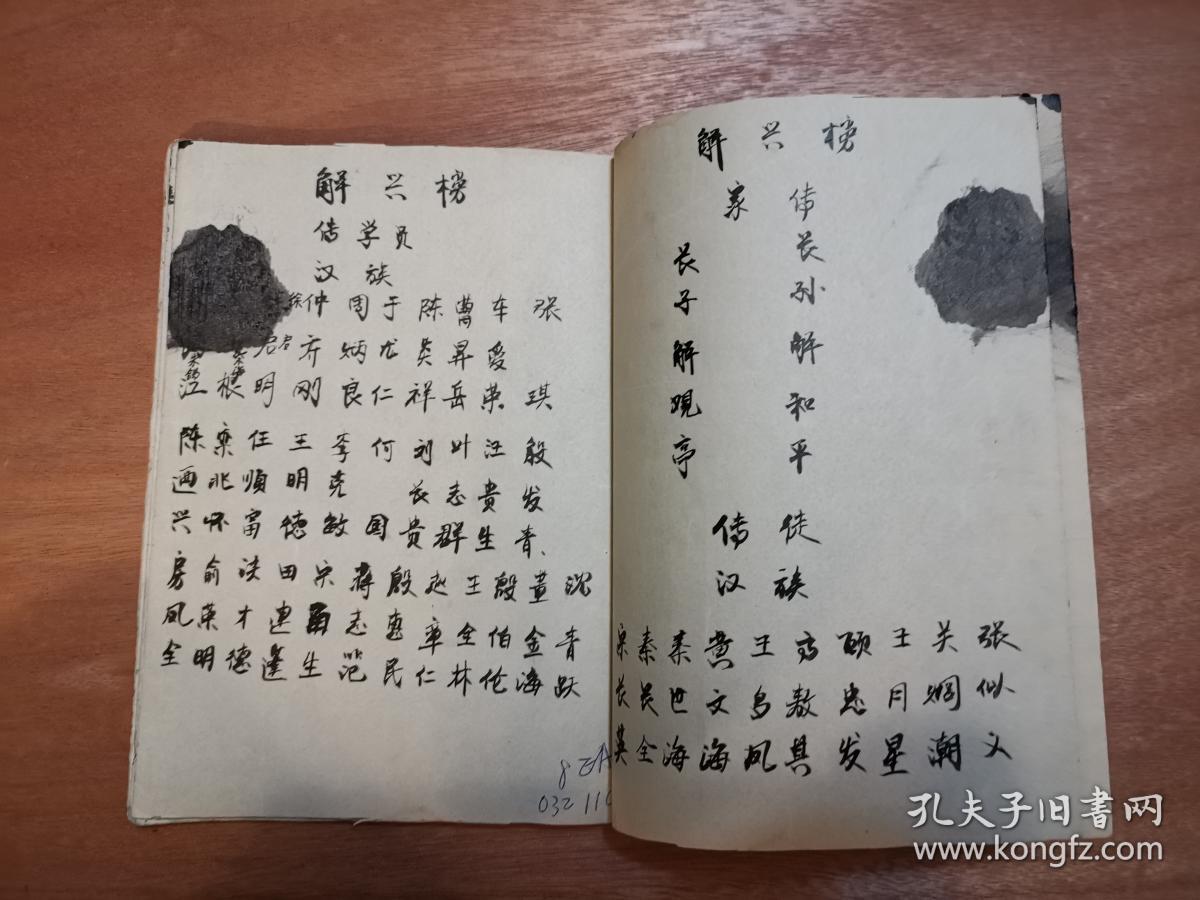 解兴榜
传学员
汉族
江
根
君明
仲齐刚
周炳良
于龙仁
陈炎祥
曹昇岳
车爱荣
张琪
陈迺兴
栾兆怀
任順富
王明德
李克敏
何国
刘长贵
叶志群
汪贵生
殷发青
房凤全
俞荣明
谈才德
田连逢
宋生
蒋志范
殷惠民
赵章仁
王全林
殷伯伦
董金海
沈青跃
032 110
解兴榜
家传
长子解觀亭
长孙解和平
传徒
汉族
宋长英
秦长全
秦世海
黄文海
王鸟凤
高敖其
顾忠发
王月星
关炯潮
张似义
孔夫子旧书网
www.kongfz.com